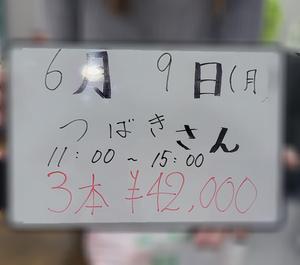 6月 9日(月)
つばきさん
11:00~15:00
3本 ¥42,000